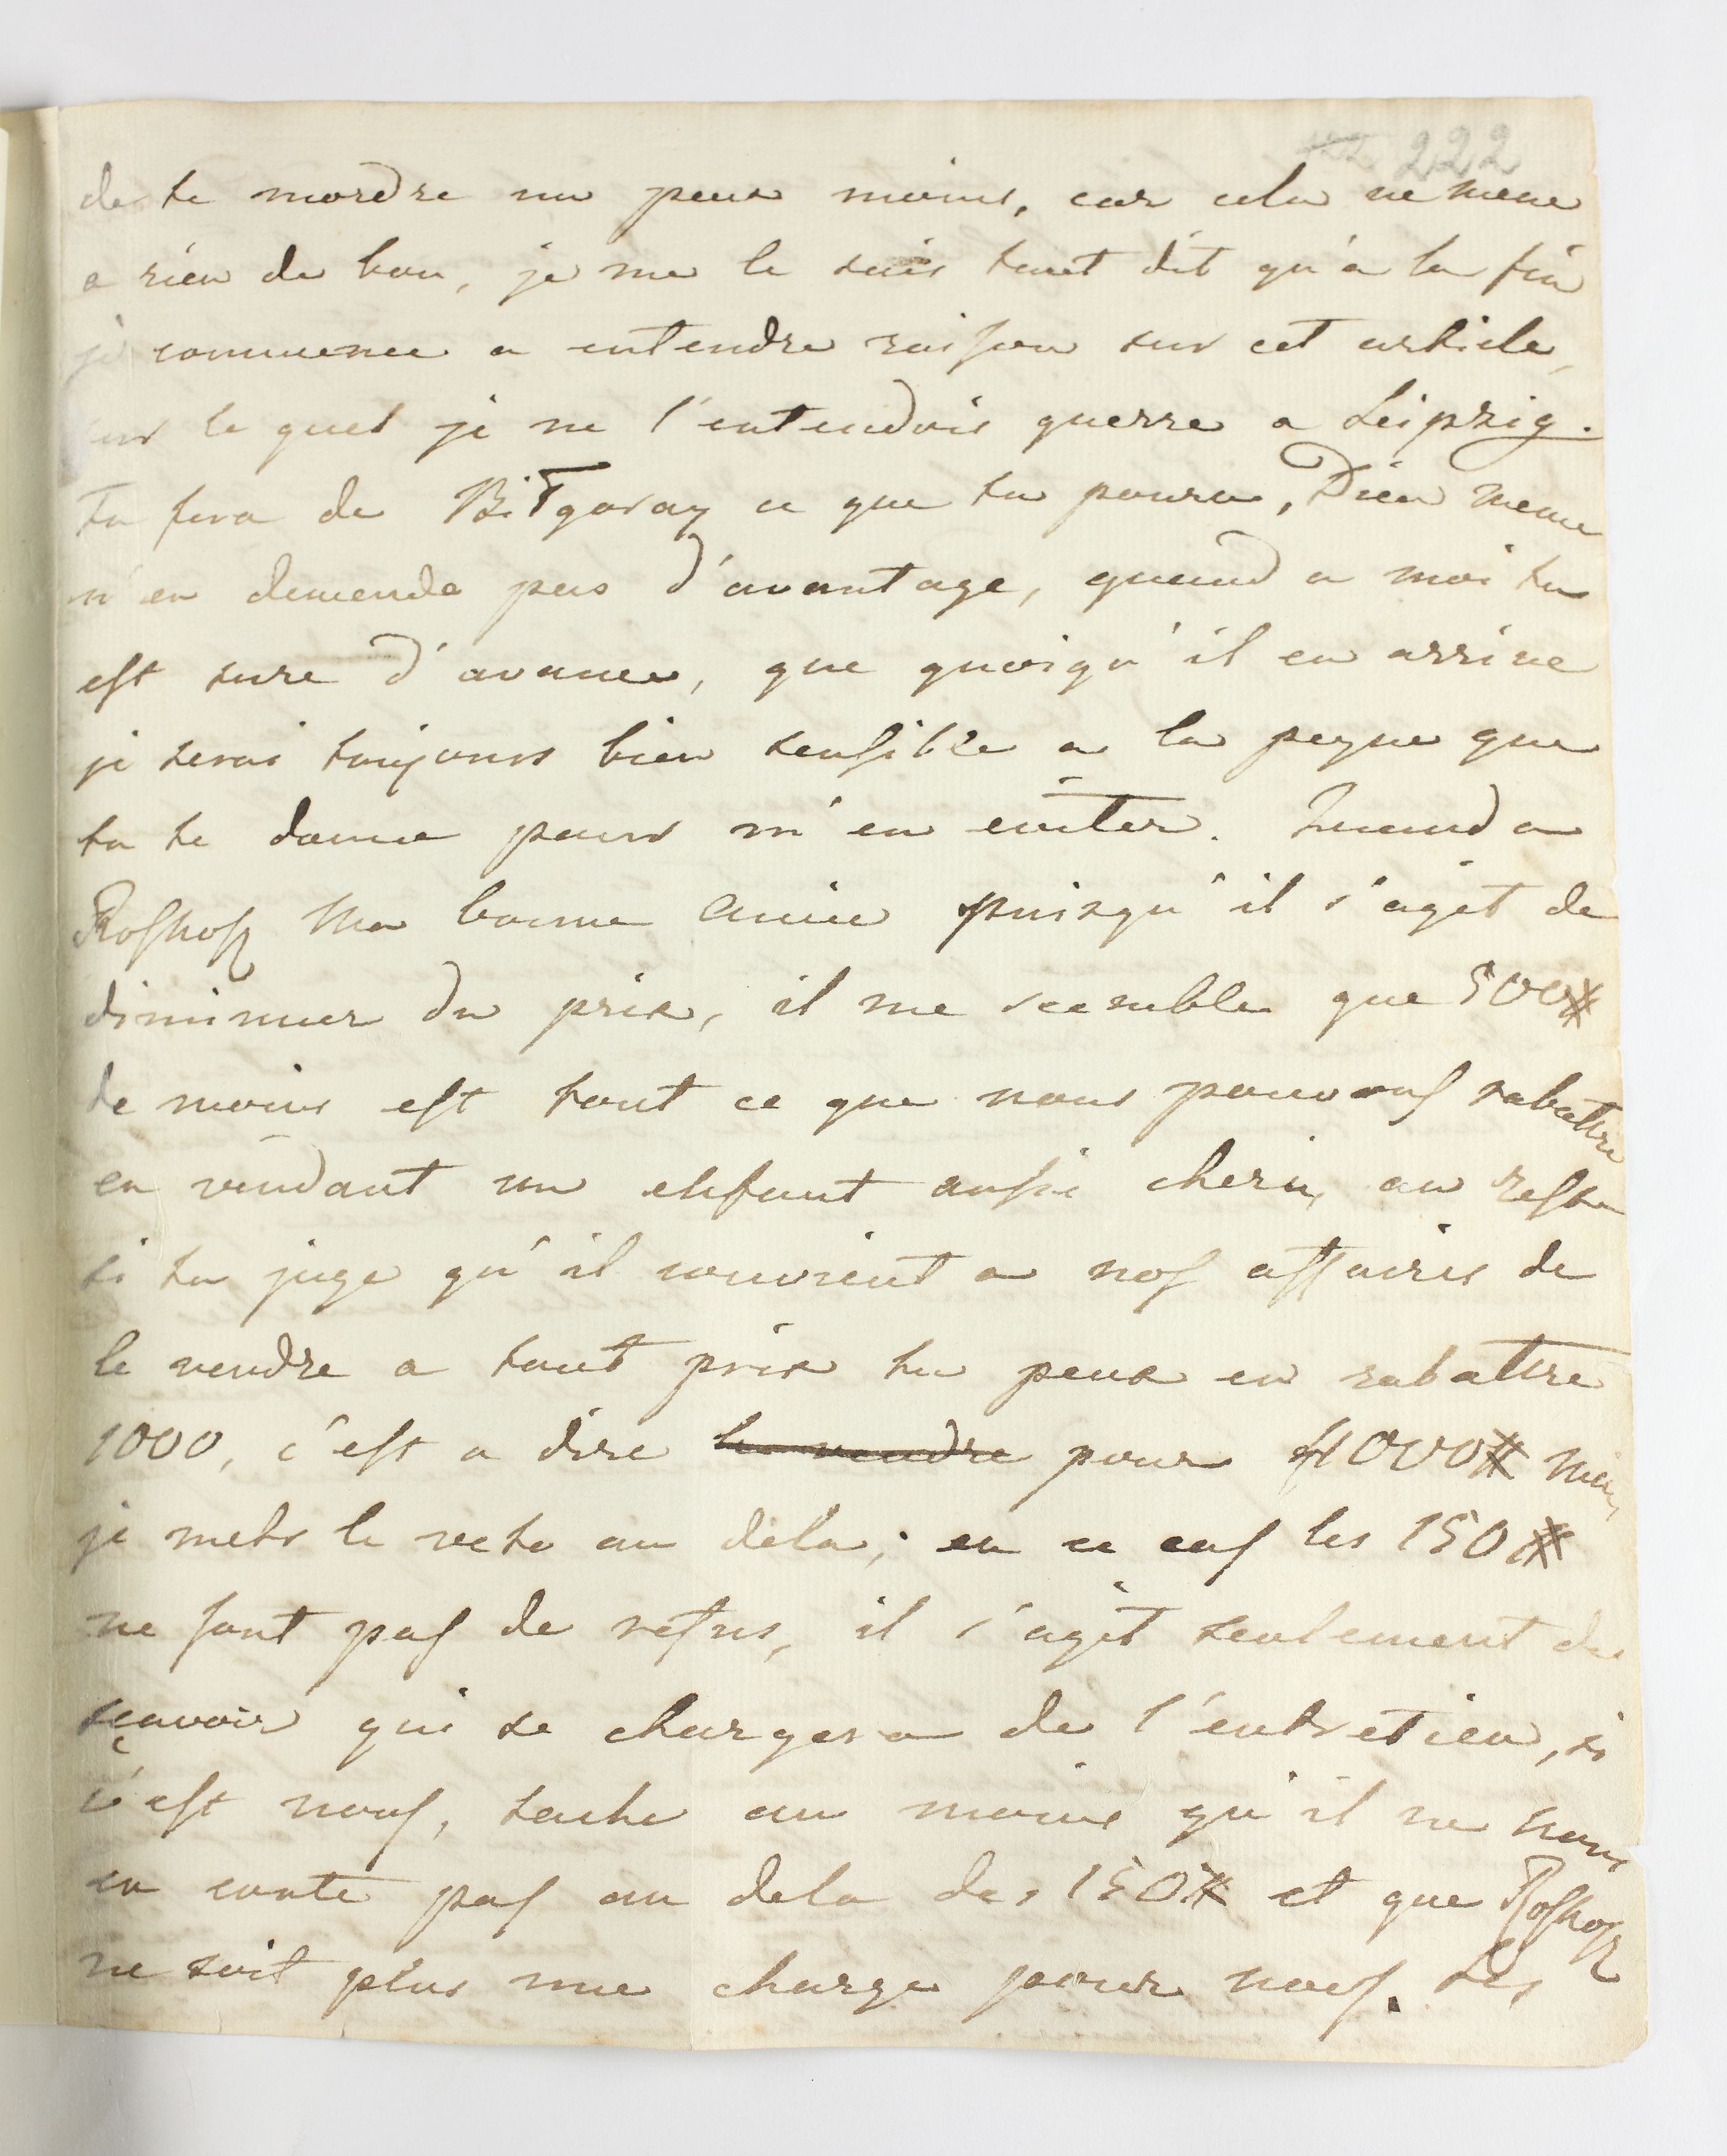 222
de te mordre un peux moins, car cela ne mene
a rien de bon, je me le suis tant dit qu'a la fin
je commence a entendre raison sur cet article,
sur le quel je ne l'entendois guerre a Leipzig.
Tu fera de Bitgoray ce que tu poura, Dieu meme
n'en demende pas d'avantage, quand a moi tu
est sure d'avance, que quoiqu'il en arrive
je serai toujours bien sensible a la peyne que
tu te donne pour m'en eviter. Quand a
Roskosz Ma bonne Amie puisqu'il s'agit de
diminuer du prix, il me scemble que 500#
de moins est tout ce que nous pouvons rabattre
en vendant un enfant aussi cheri, au reste
si tu juge qu'il convient a nos affaires de
le vendre a tout prix tu peux en rabattre
1000, c'est a dire le vendre pour 4000# Mais
je mets le veto au dela; en ce cas les 150#
ne sont pas de refus, il s'agit seulement de
sçavoir qui se chargera de l'entretien, si
c'est nous, tache au moins qu'il ne nous
en coute pas au dela des 150# et que Roskosz
ne soit plus une charge pour nous. Les